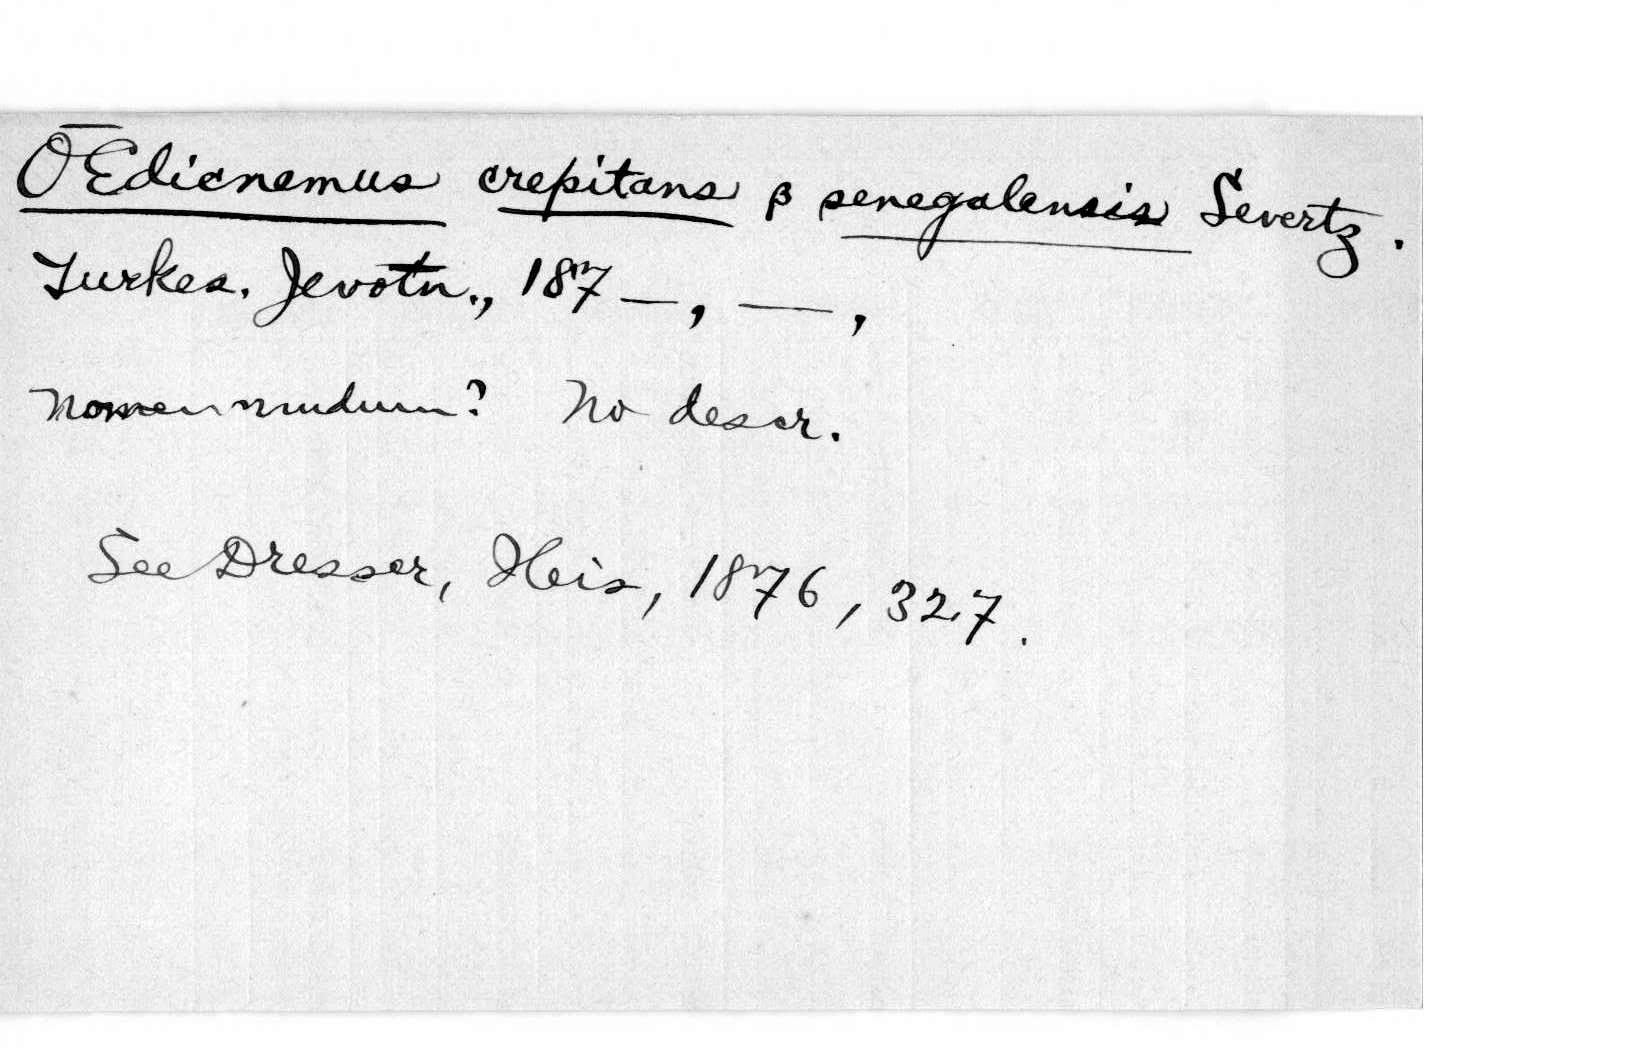 OEdicnemus crepitans β senegalensis Severtz.
Turkes. Jevotn., 187—, —,
Nomen nudum? No descr.
See Dresser, Ibis, 1876, 327.